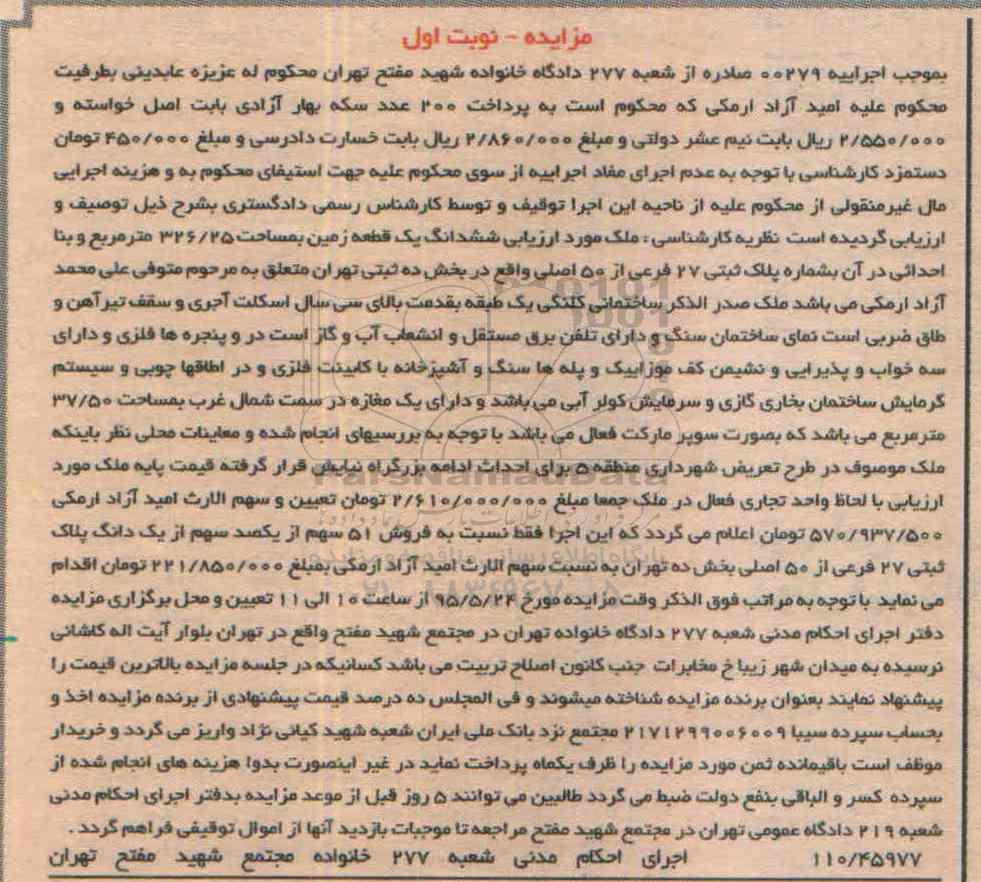 مزایده - نوبت اول
بموجب اجراییه ۰۰۲۷۹ صادره از شعبه ۲۷۷ دادگاه خانواده شهید مفتح تهران محکوم له عزیزه عابدینی بطرفیت
محکوم علیه امید آزاد ارمکی که محکوم است به پرداخت ۲۰۰ عدد سکه بهار آزادی بابت اصل خواسته و
۲/۵۵۰/۰۰۰ ریال بابت نیم عشر دولتی و مبلغ ۲/۸۶۰/۰۰۰ ریال بابت خسارت دادرسی و مبلغ ۴۵۰/۰۰۰ تومان
دستمزد کارشناسی با توجه به عدم اجرای مفاد اجراییه از سوی محکوم علیه جهت استیفای محکوم به و هزینه اجرایی
مال غیرمنقولی از محکوم علیه از ناحیه این اجرا توقیف و توسط کارشناس رسمی دادگستری بشرح ذیل توصیف و
ارزیابی گردیده است نظریه کارشناسی : ملک مورد ارزیابی ششدانگ یک قطعه زمین بمساحت ۳۲۶/۲۵ مترمربع و بنا
احداثی در آن بشماره پلاک ثبتی ۲۷ فرعی از ۵۰ اصلی واقع در بخش ده ثبتی تهران متعلق به مرحوم متوفی علی محمد
آزاد ارمکی می باشد ملک صدر الذکر ساختمانی کلنگی یک طبقه بقدمت بالای سی سال اسکلت آجری و سقف تیرآهن و
طاق ضربی است نمای ساختمان سنگ و دارای تلفن برق مستقل و انشعاب آب و گاز است در و پنجره ها فلزی و دارای
سه خواب و پذیرایی و نشیمن کف موزاییک و پله ها سنگ و آشپزخانه با کابینت فلزی و در اطاقها چوبی و سیستم
گرمایش ساختمان بخاری گازی و سرمایش کولر آبی می باشد و دارای یک مغازه در سمت شمال غرب بمساحت ۳۷/۵۰
مترمربع می باشد که بصورت سوپر مارکت فعال می باشد با توجه به بررسیهای انجام شده و معاینات محلی نظر باینکه
ملک موصوف در طرح تعریض شهرداری منطقه ۵ برای احداث ادامه بزرگراه نیایش قرار گرفته قیمت پایه ملک مورد
ارزیابی با لحاظ واحد تجاری فعال در ملک جمعا مبلغ ۲/۶۱۰/۰۰۰/۰۰۰ تومان تعیین و سهم الارث امید آزاد ارمکی
۵۷۰/۹۳۷/۵۰۰ تومان اعلام می گردد که این اجرا فقط نسبت به فروش ۵۱ سهم از یکصد سهم از یک دانگ پلاک
ثبتی ۲۷ فرعی از ۵۰ اصلی بخش ده تهران به نسبت سهم الارث امید آزاد ارمکی بمبلغ ۲۲۱/۸۵۰/۰۰۰ تومان اقدام
می نماید با توجه به مراتب فوق الذکر وقت مزایده مورخ ۹۵/۵/۲۴ از ساعت ۱۰ الی ۱۱ تعیین و محل برگزاری مزایده
دفتر اجرای احکام مدنی شعبه ۲۷۷ دادگاه خانواده تهران در مجتمع شهید مفتح واقع در تهران بلوار آیت اله کاشانی
نرسیده به میدان شهر زیبا خ مخابرات جنب کانون اصلاح تربیت می باشد کسانیکه در جلسه مزایده بالاترین قیمت را
پیشنهاد نمایند بعنوان برنده مزایده شناخته میشوند و فی المجلس ده درصد قیمت پیشنهادی از برنده مزایده اخذ و
بحساب سپرده سیبا ۲۱۷۱۲۹۹۰۰۶۰۰۹ مجتمع نزد بانک ملی ایران شعبه شهید کیانی نژاد واریز می گردد و خریدار
موظف است باقیمانده ثمن مورد مزایده را ظرف یکماه پرداخت نماید در غیر اینصورت بدوا هزینه های انجام شده از
سپرده کسر و الباقی بنفع دولت ضبط می گردد طالبین می توانند ۵ روز قبل از موعد مزایده بدفتر اجرای احکام مدنی
شعبه ۲۱۹ دادگاه عمومی تهران در مجتمع شهید مفتح مراجعه تا موجبات بازدید آنها از اموال توقیفی فراهم گردد .
۱۱۰/۴۵۹۷۷ اجرای احکام مدنی شعبه ۲۷۷ خانواده مجتمع شهید مفتح تهران
ParsNamadData